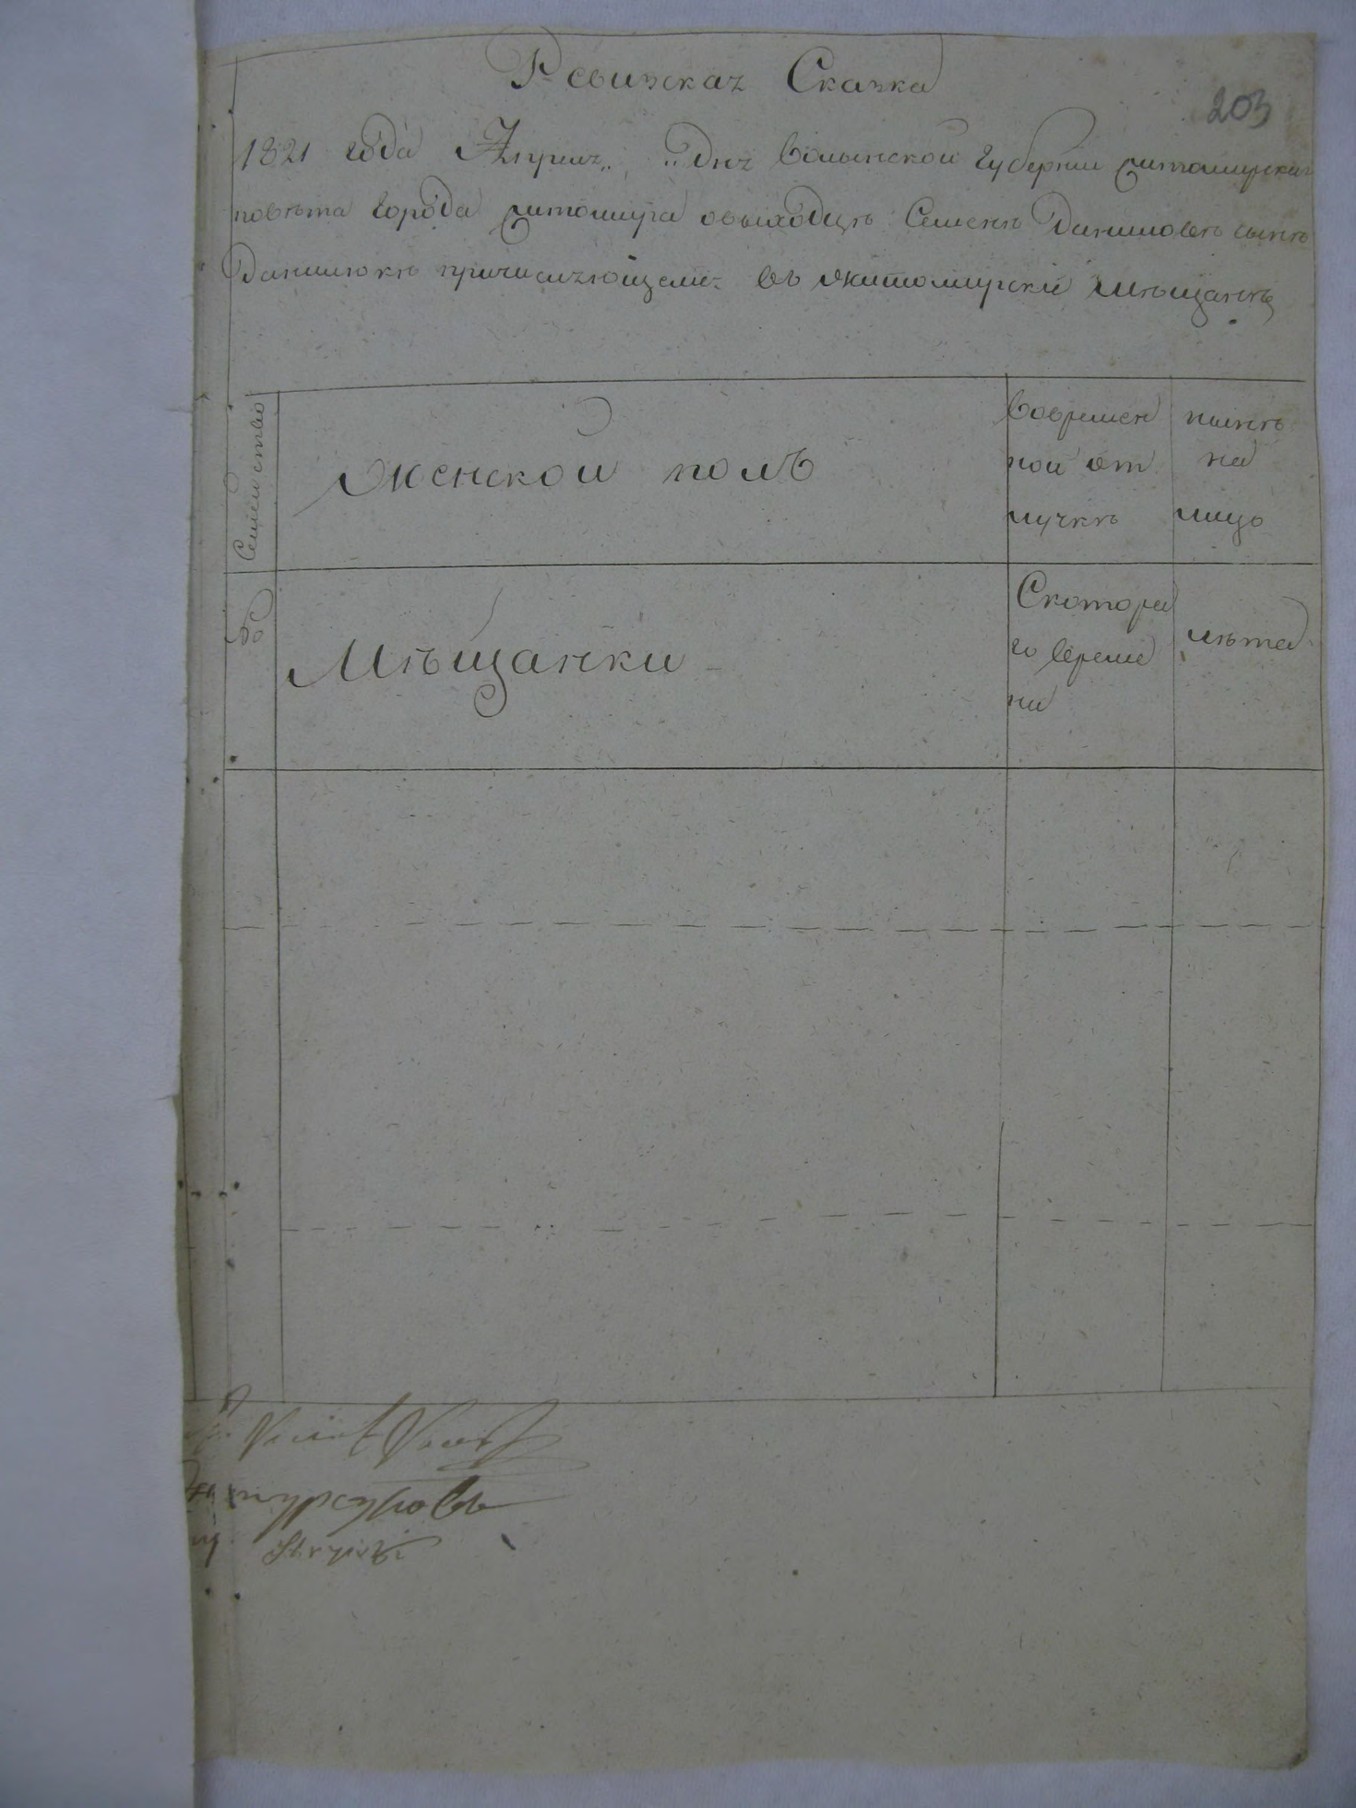 Ревизская Сказка
203
1821 года Апреля „ „ дня Волынской Губернии Житомирскаго
повѣта города Житомира о выходцѣ Семенѣ Даниловѣ сынѣ
Данилюкѣ причисляющемся въ житомирскіе мѣщанѣ
Семейство
женской полъ
Вовремен
ной от
лучкѣ
нынѣ
на
лицо
№
Мѣщанки
Скотора
го време
ни
лѣта